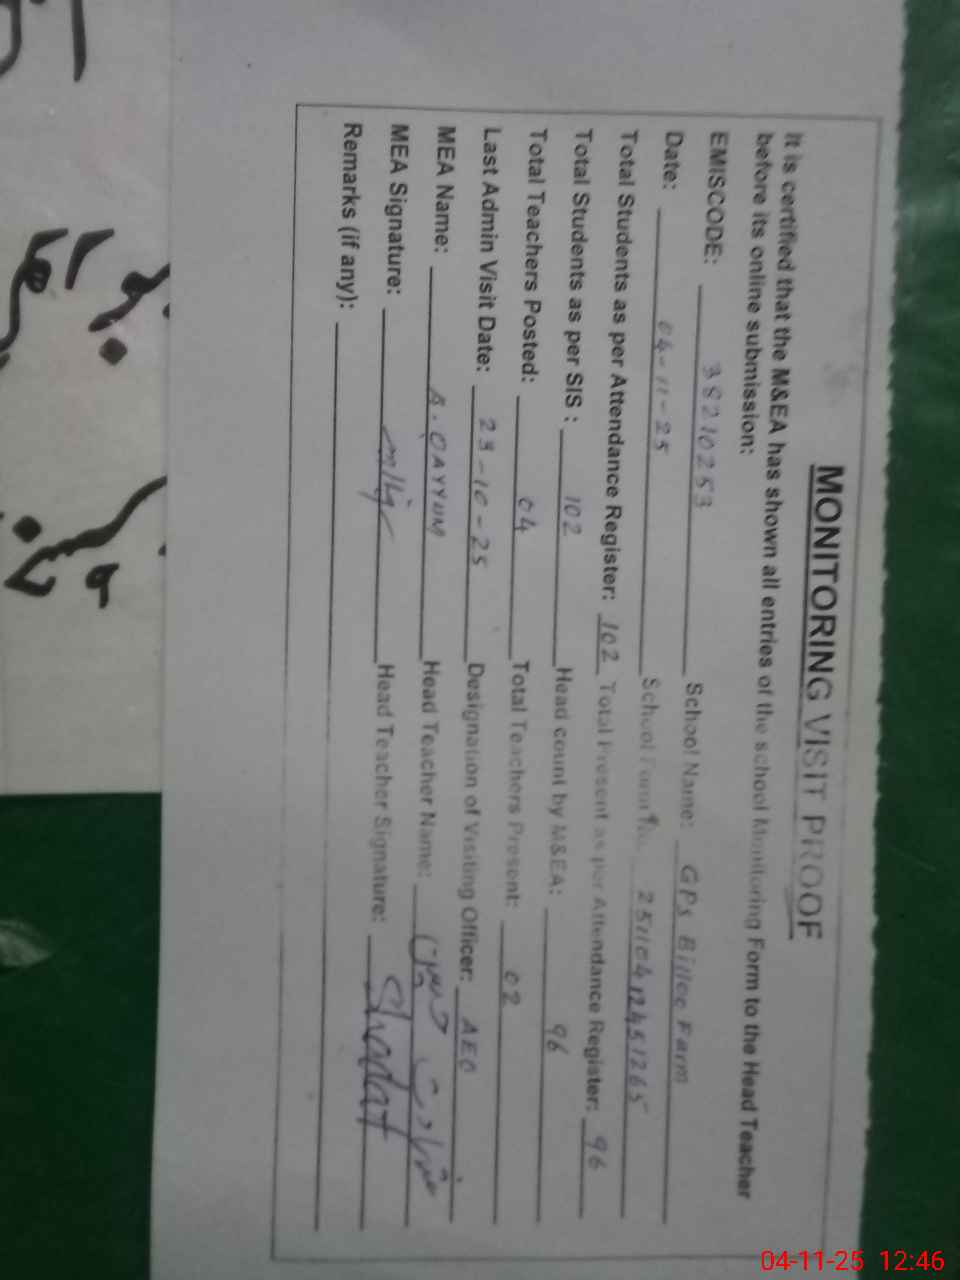 MONITORING VISIT PROOF
It is certified that the M&EA has shown all entries of the school Monitoring Form to the Head Teacher
before its online submission:
EMISCODE: 38210253 School Name: GPS Billoo Farm
Date: 04-11-25 School Form No. 25110412451265
Total Students as per Attendance Register: 102 Total Present as per Attendance Register: 96
Total Students as per SIS : 102 Head count by M&EA: 96
Total Teachers Posted: 04 Total Teachers Present: 02
Last Admin Visit Date: 23-10-25 Designation of Visiting Officer: AEO
MEA Name: A.QAYYUM Head Teacher Name:
MEA Signature: Head Teacher Signature:
Remarks (if any):
04-11-25 12:46